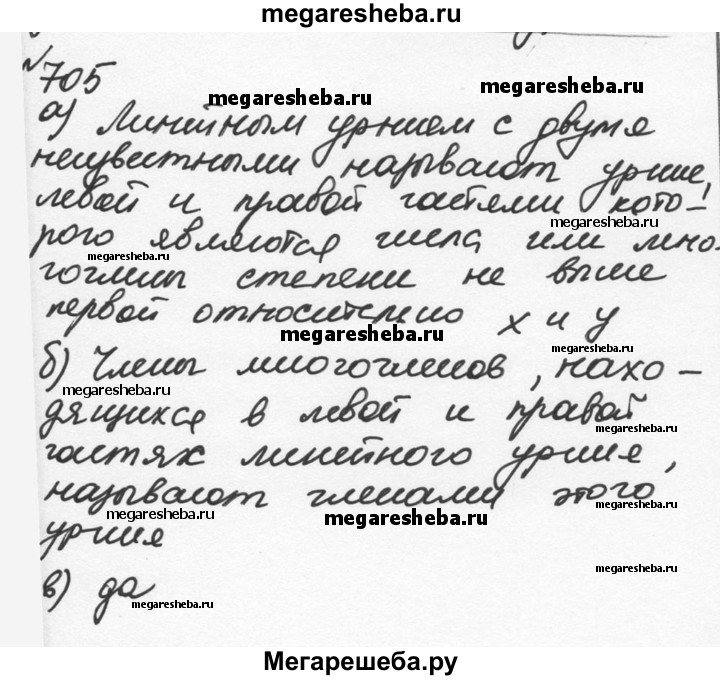 megaresheba.ru
№ 705
megaresheba.ru
а) Линейным урнием с двумя
megaresheba.ru
неизвестными называют урние,
левой и правой частями кото-
megaresheba.ru
рого являются числа или мно-
megaresheba.ru
гочлены степени не выше
первой относительно x и y
megaresheba.ru
б) Члены многочленов, нахо-
megaresheba.ru
дящихся в левой и правой
megaresheba.ru
частях линейного урния,
называют членами этого
megaresheba.ru
megaresheba.ru
megaresheba.ru
урния
megaresheba.ru
в) да
megaresheba.ru
Мегарешеба.ру